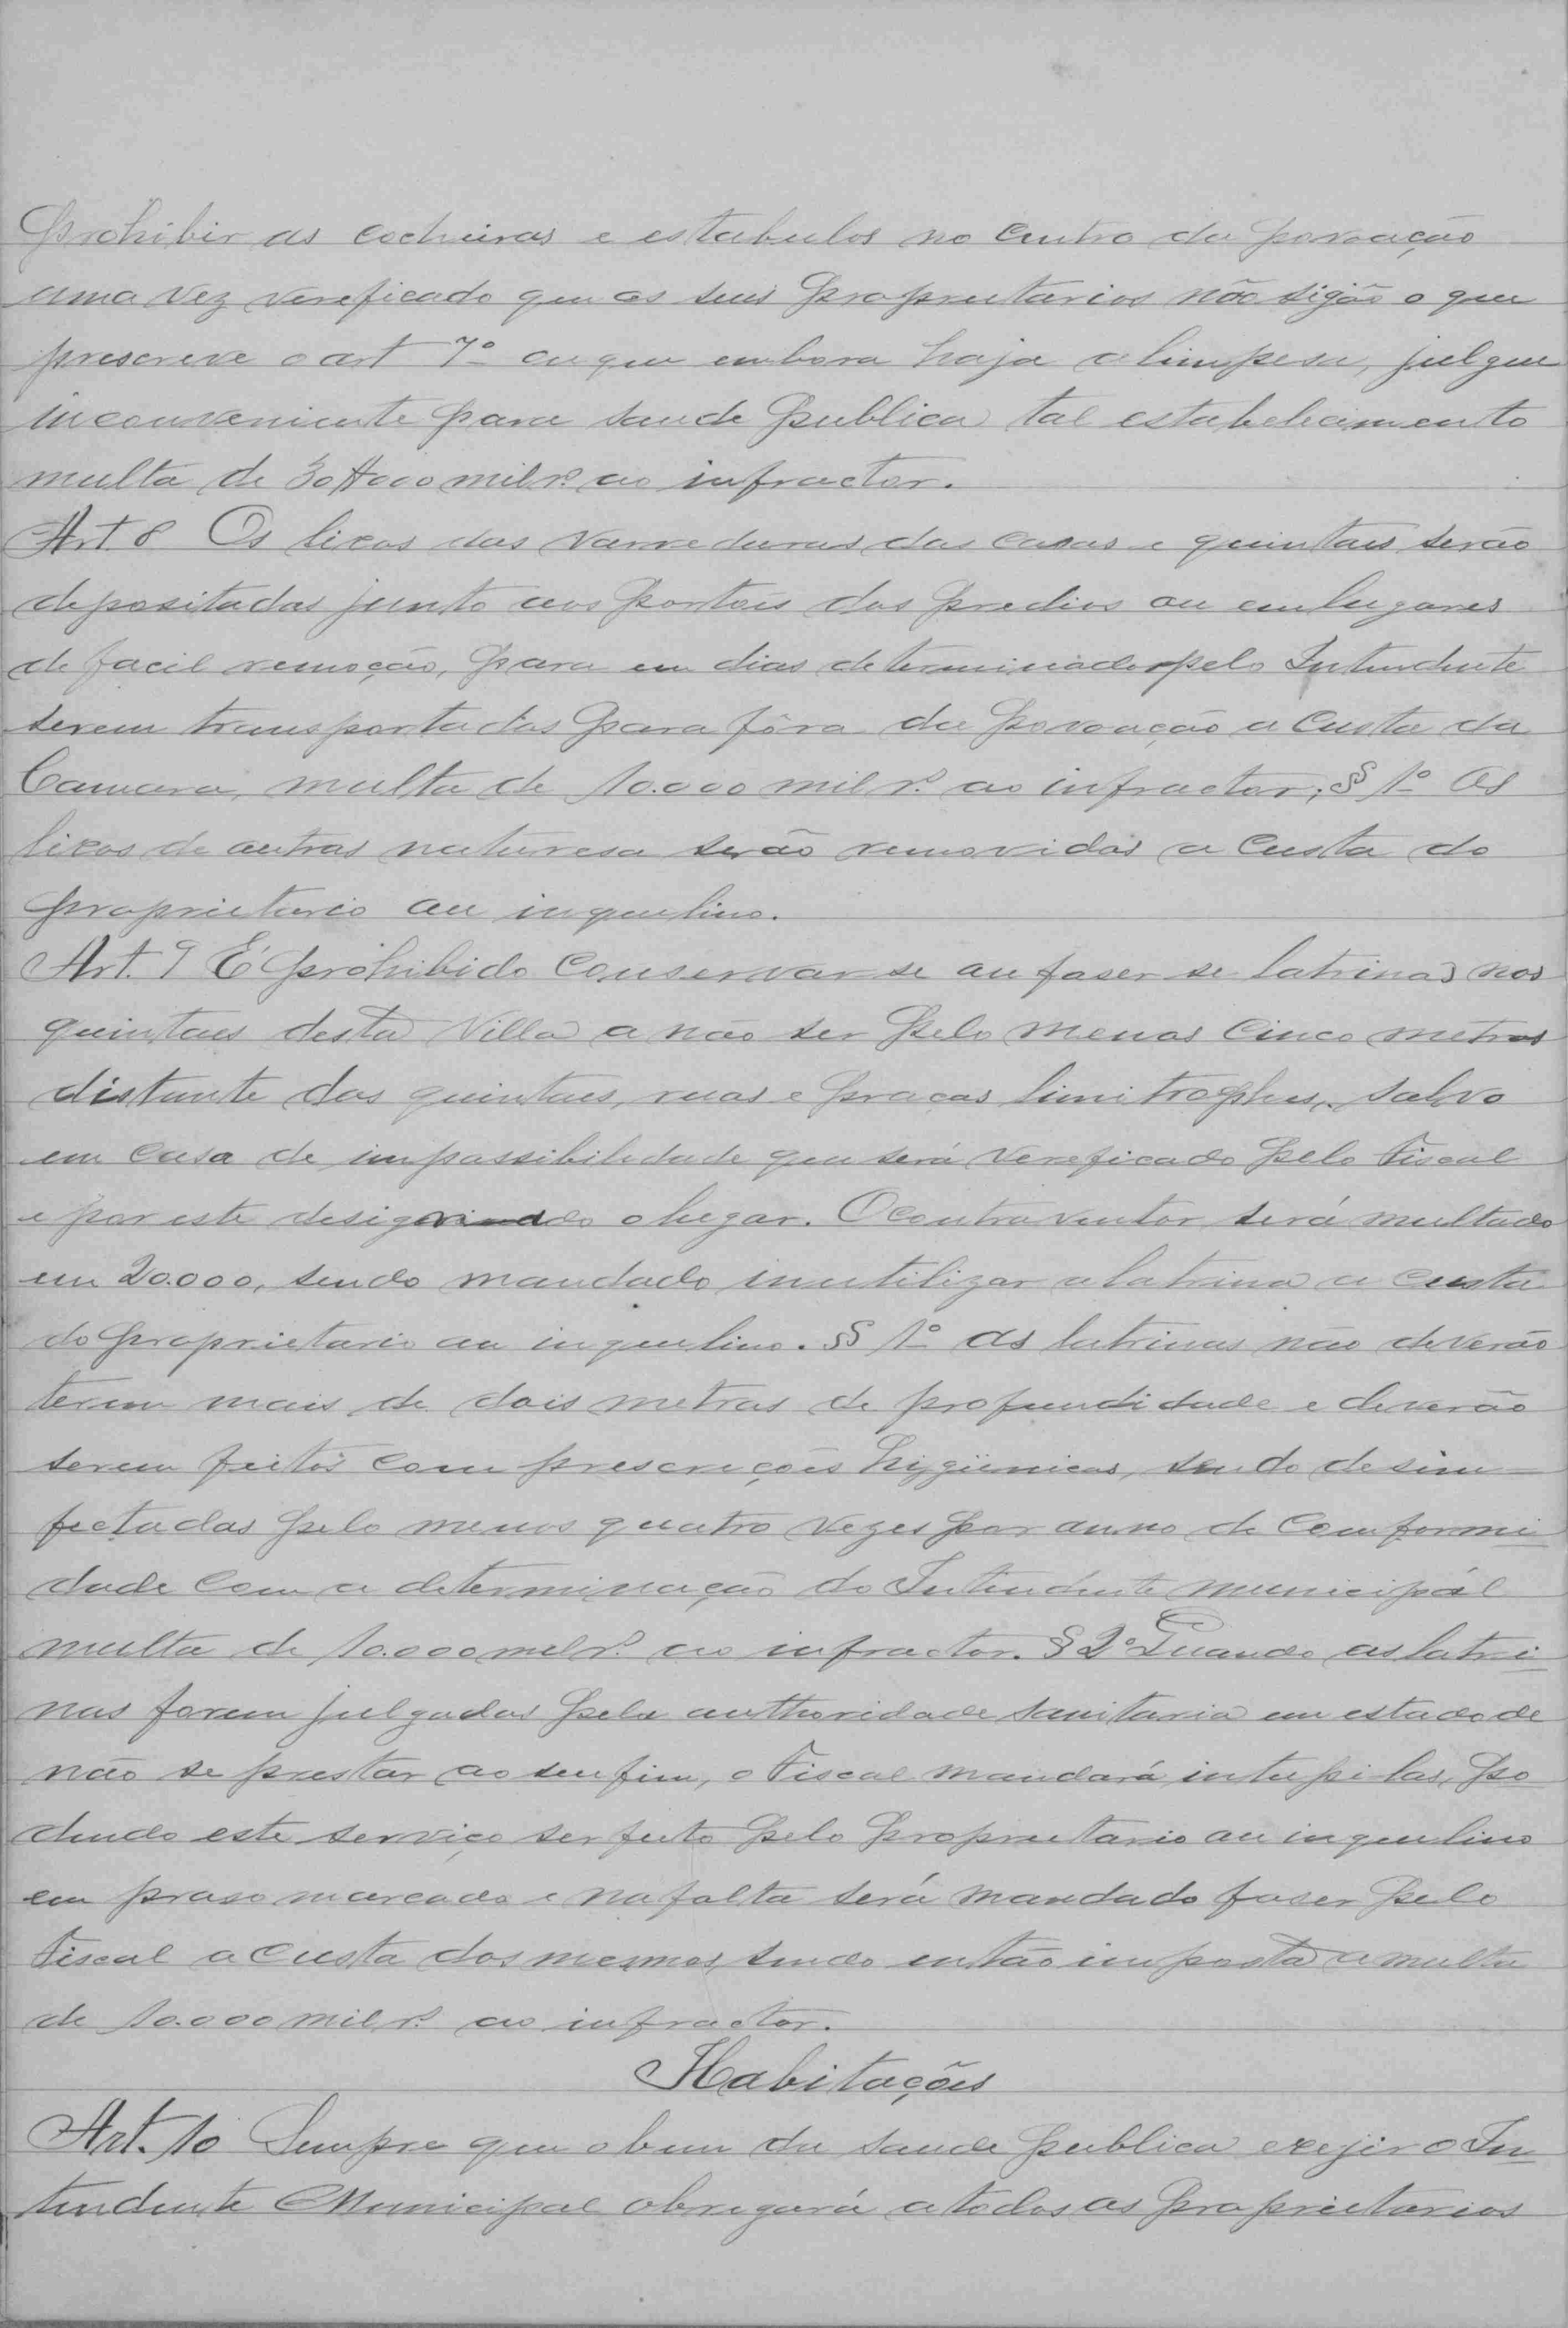 prohibir as cocheiras e estabulos no centro da povoação
uma vez vereficado que os seus proprietarios não sigão o que
prescreve o art 7º ou que embora haja a limpesa, julgue
inconveniente para saude publica tal estabelecimento
multa de 30$000 mil rs. ao infractor.
Art. 8 Os lixos das varreduras das casas e quintaes serão
depositadas junto aos portões dos predios ou em lugares
de facil remoção, para em dias determinados pelo Intendente
serem transportados para fóra da povoação a custa da
Camara, multa de 10.000 mil rs. ao infractor; § 1º Os
lixos de outras naturesa serão removidos a custa do
proprietario ou inquelino.
Art. 9 É prohibido conservar se ou faser se latrinas nos
quintaes desta Villa a não ser pelo menos cinco metros
distante dos quintaes, ruas e praças limitrophes, salvo
em caso de impossibiledade que será vereficado pelo Fiscal
e por este designado o lugar. O contraventor será multado
em 20.000, sendo mandado inutilizar a latrina a custa
do proprietario ou inquelino. §§ 1º As latrinas não deverão
terem mais de dois metros de profundidade e deverão
serem feitos com prescreições hygiienicas, sendo desim-
fectadas pelo menos quatro vezes por anno de comformi
dade com a determinação do Intendente municipál
multa de 10.000 mil rs. ao infractor. § 2º Quando as latri
nas forem julgadas pela authoridade sanitaria em estado de
não se prestar ao seu fim, o Fiscal mandará intupi-las, po
dendo este serviço ser feito pelo proprietario ou inquelino
em praso marcado e na falta será mandado faser pelo
Fiscal a custa dos mesmos, sendo então imposta a multa
de 10.000 mil rs. ao infractor.
Habitações
Art. 10 Sempre que o bem da saude publica exejir o In
tendente Municipal obrigará a todos os proprietarios